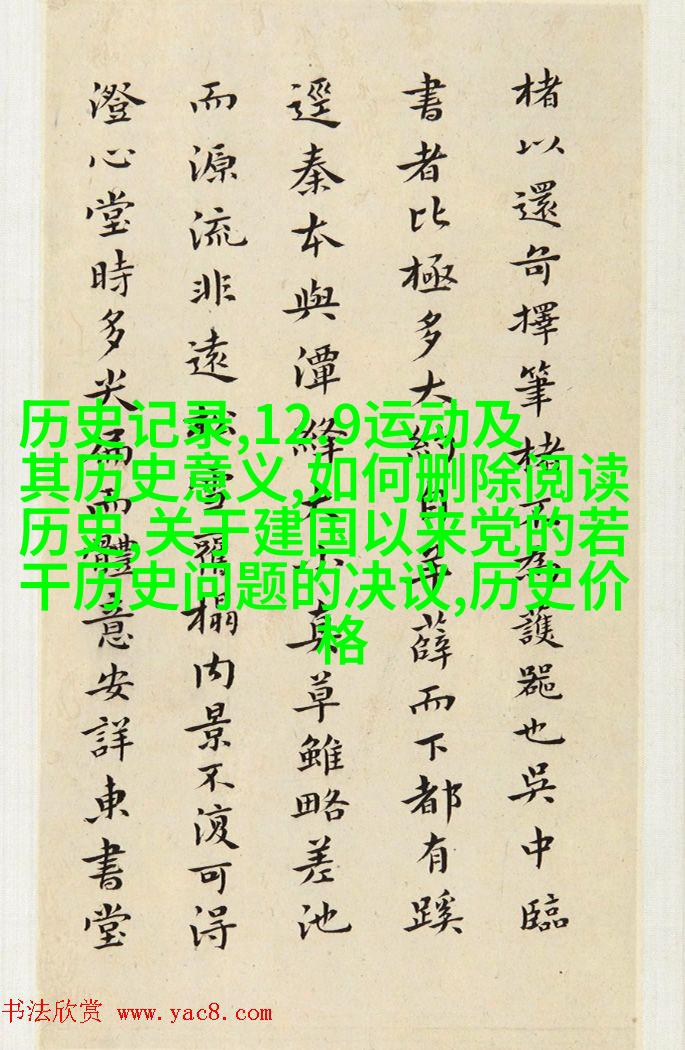 楮以還擇筆楮不為護器也吳中臨
書者比極多大約薛而下都有蹊
逕秦本與潭絳大真草雖略差池
而源流非遠雪榻內景不復可得
澄心堂時多尖而體意安詳東書堂
历史记录,12.9运动及
其历史意义,如何删除阅读
历史,关于建国以来党的若
干历史问题的决议,历史价
格
书法欣赏 www.yac8.com